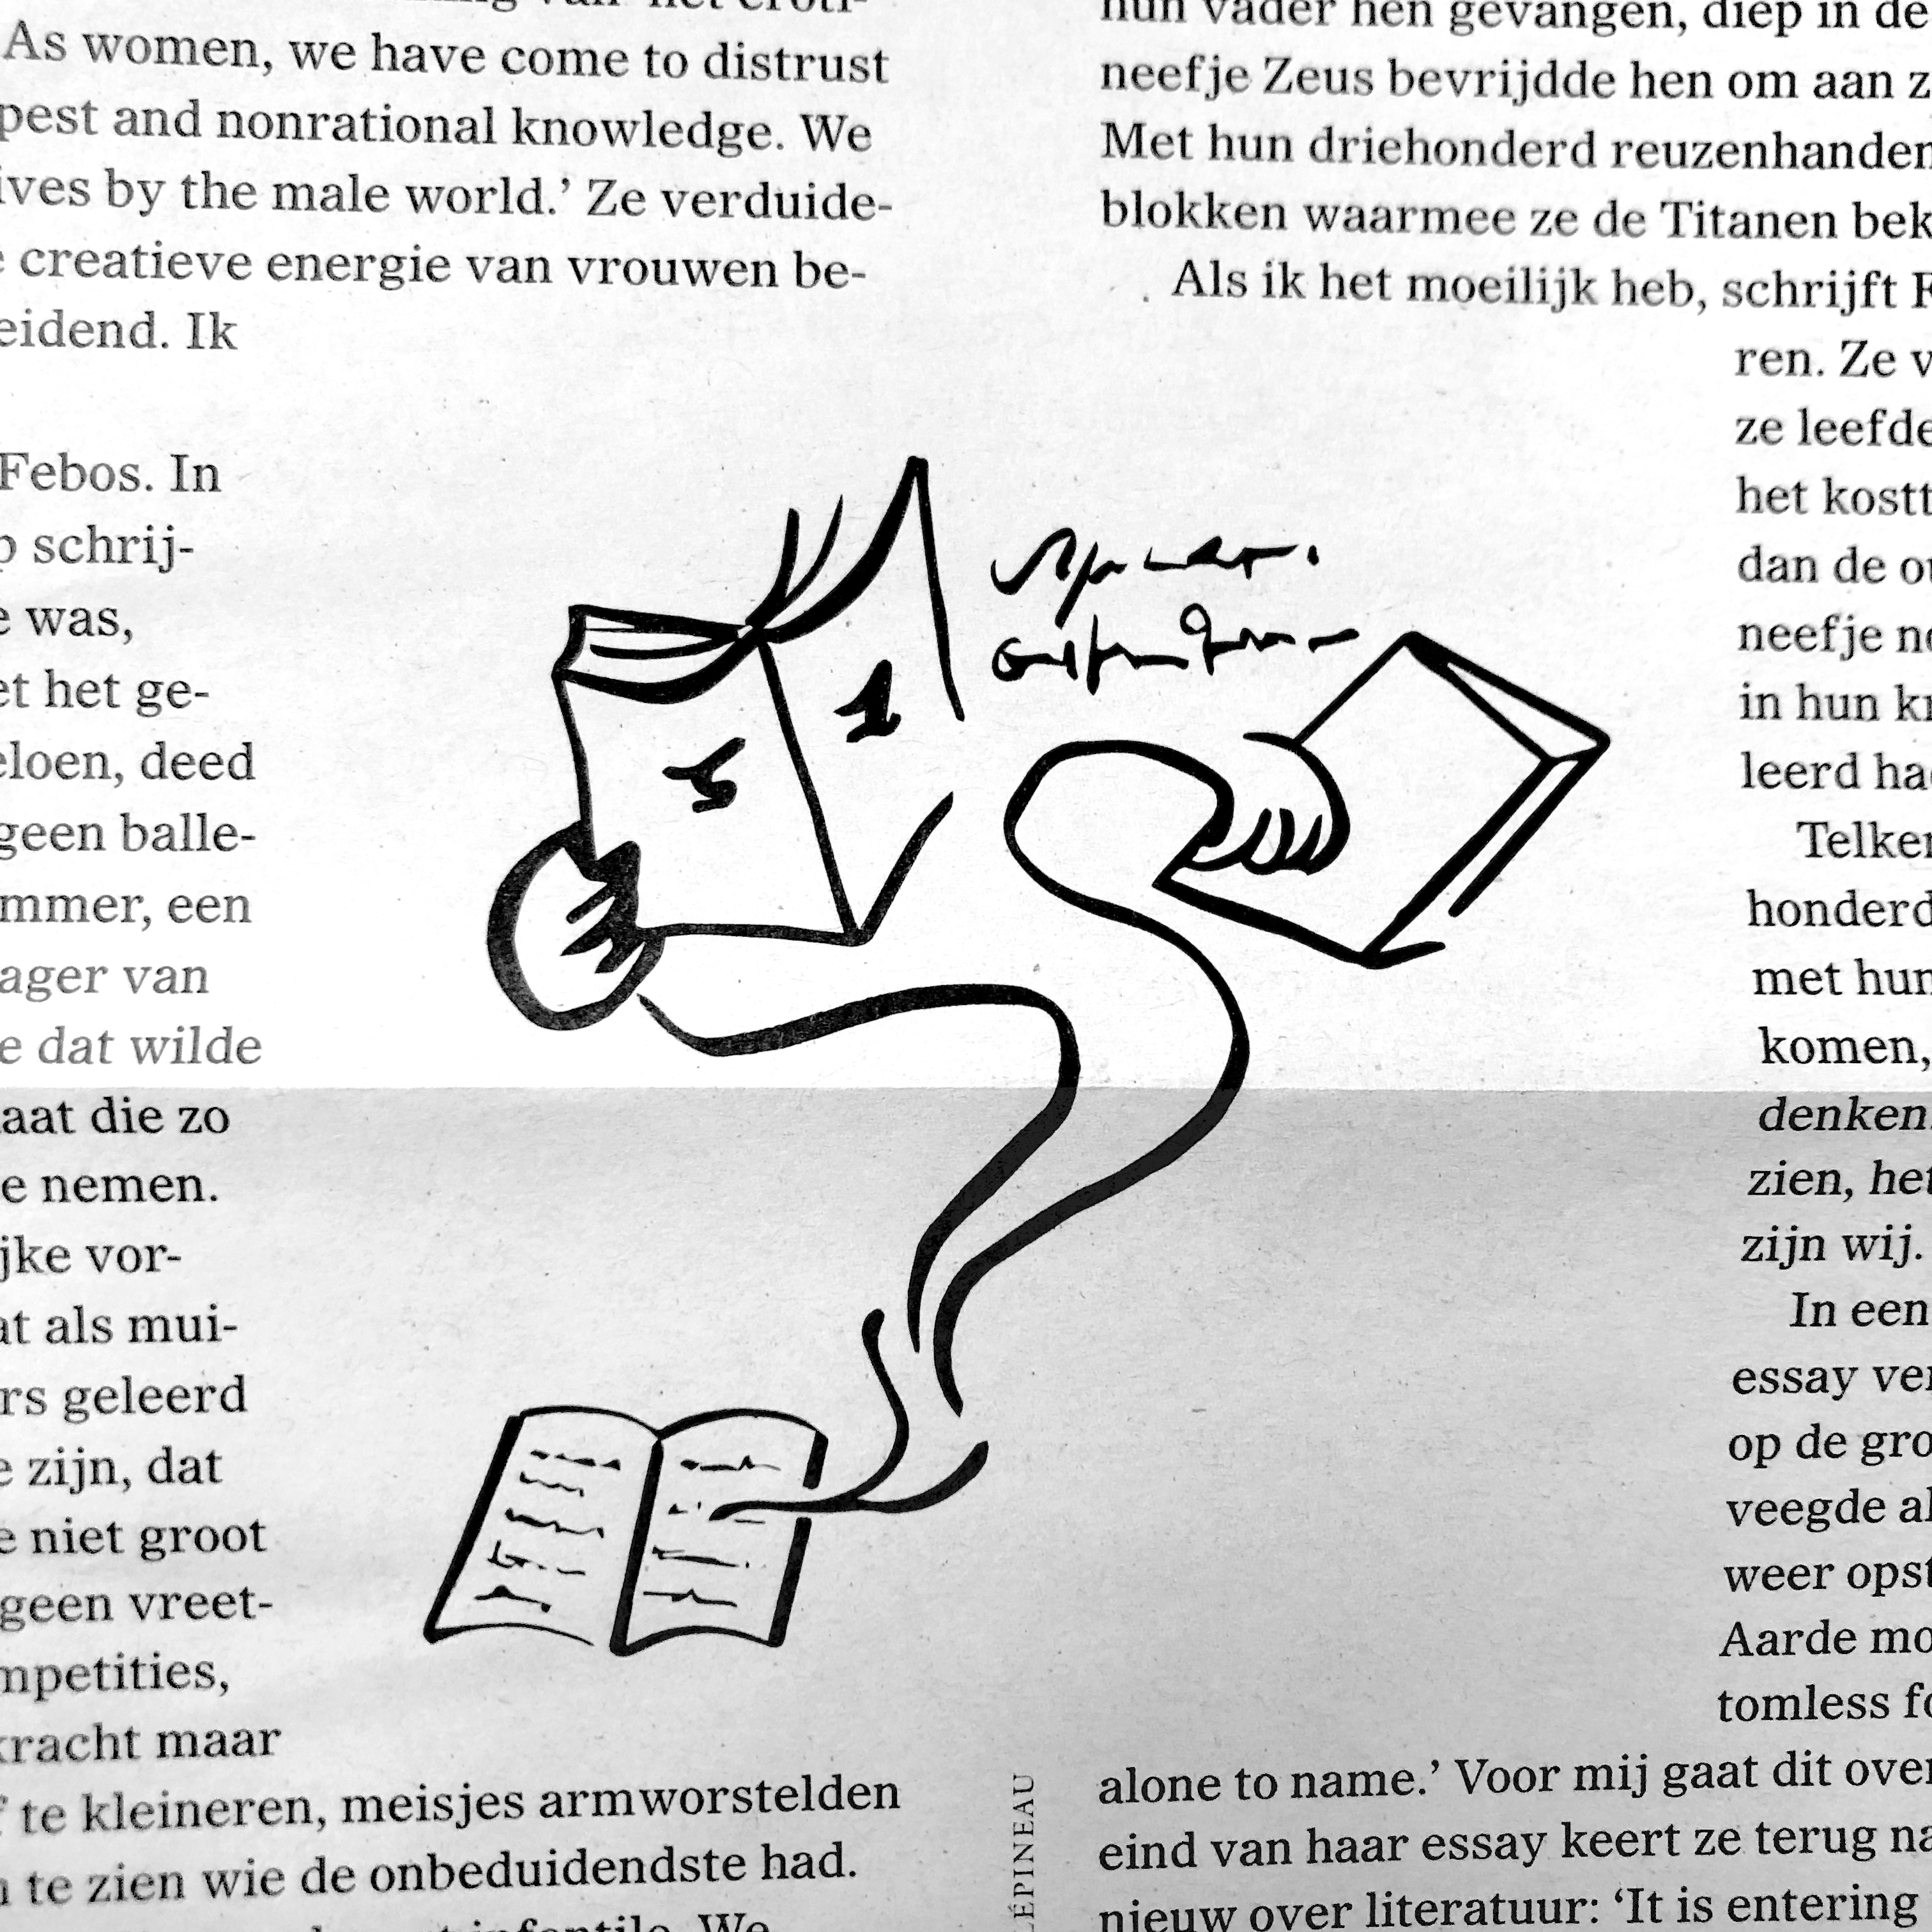 As women, we have come to distrust
pest and nonrational knowledge. We
ives by the male world.’ Ze verduide-
e creatieve energie van vrouwen be-
eidend. Ik
Febos. In
schrij-
e was,
et het ge-
eloen, deed
geen balle-
mmer, een
ager van
e dat wilde
aat die zo
e nemen.
ijke vor-
at als mui-
rs geleerd
e zijn, dat
e niet groot
geen vreet-
mpetities,
kracht maar
te kleineren, meisjes armworstelden
te zien wie de onbeduidendste had.
hun vader hen gevangen, diep in de
neefje Zeus bevrijdde hen om aan z
Met hun driehonderd reuzenhanden
blokken waarmee ze de Titanen bek
Als ik het moeilijk heb, schrijft F
ren. Ze v
ze leefde
het kostt
dan de o
neefje n
in hun k
leerd ha
Telken
honderd
met hun
komen,
denken.
zien, het
zijn wij.
In een
essay ver
op de gro
veegde al
weer opst
Aarde mo
tomless fo
alone to name.’ Voor mij gaat dit over
eind van haar essay keert ze terug na
nieuw over literatuur: ‘It is entering
LÉPINEAU